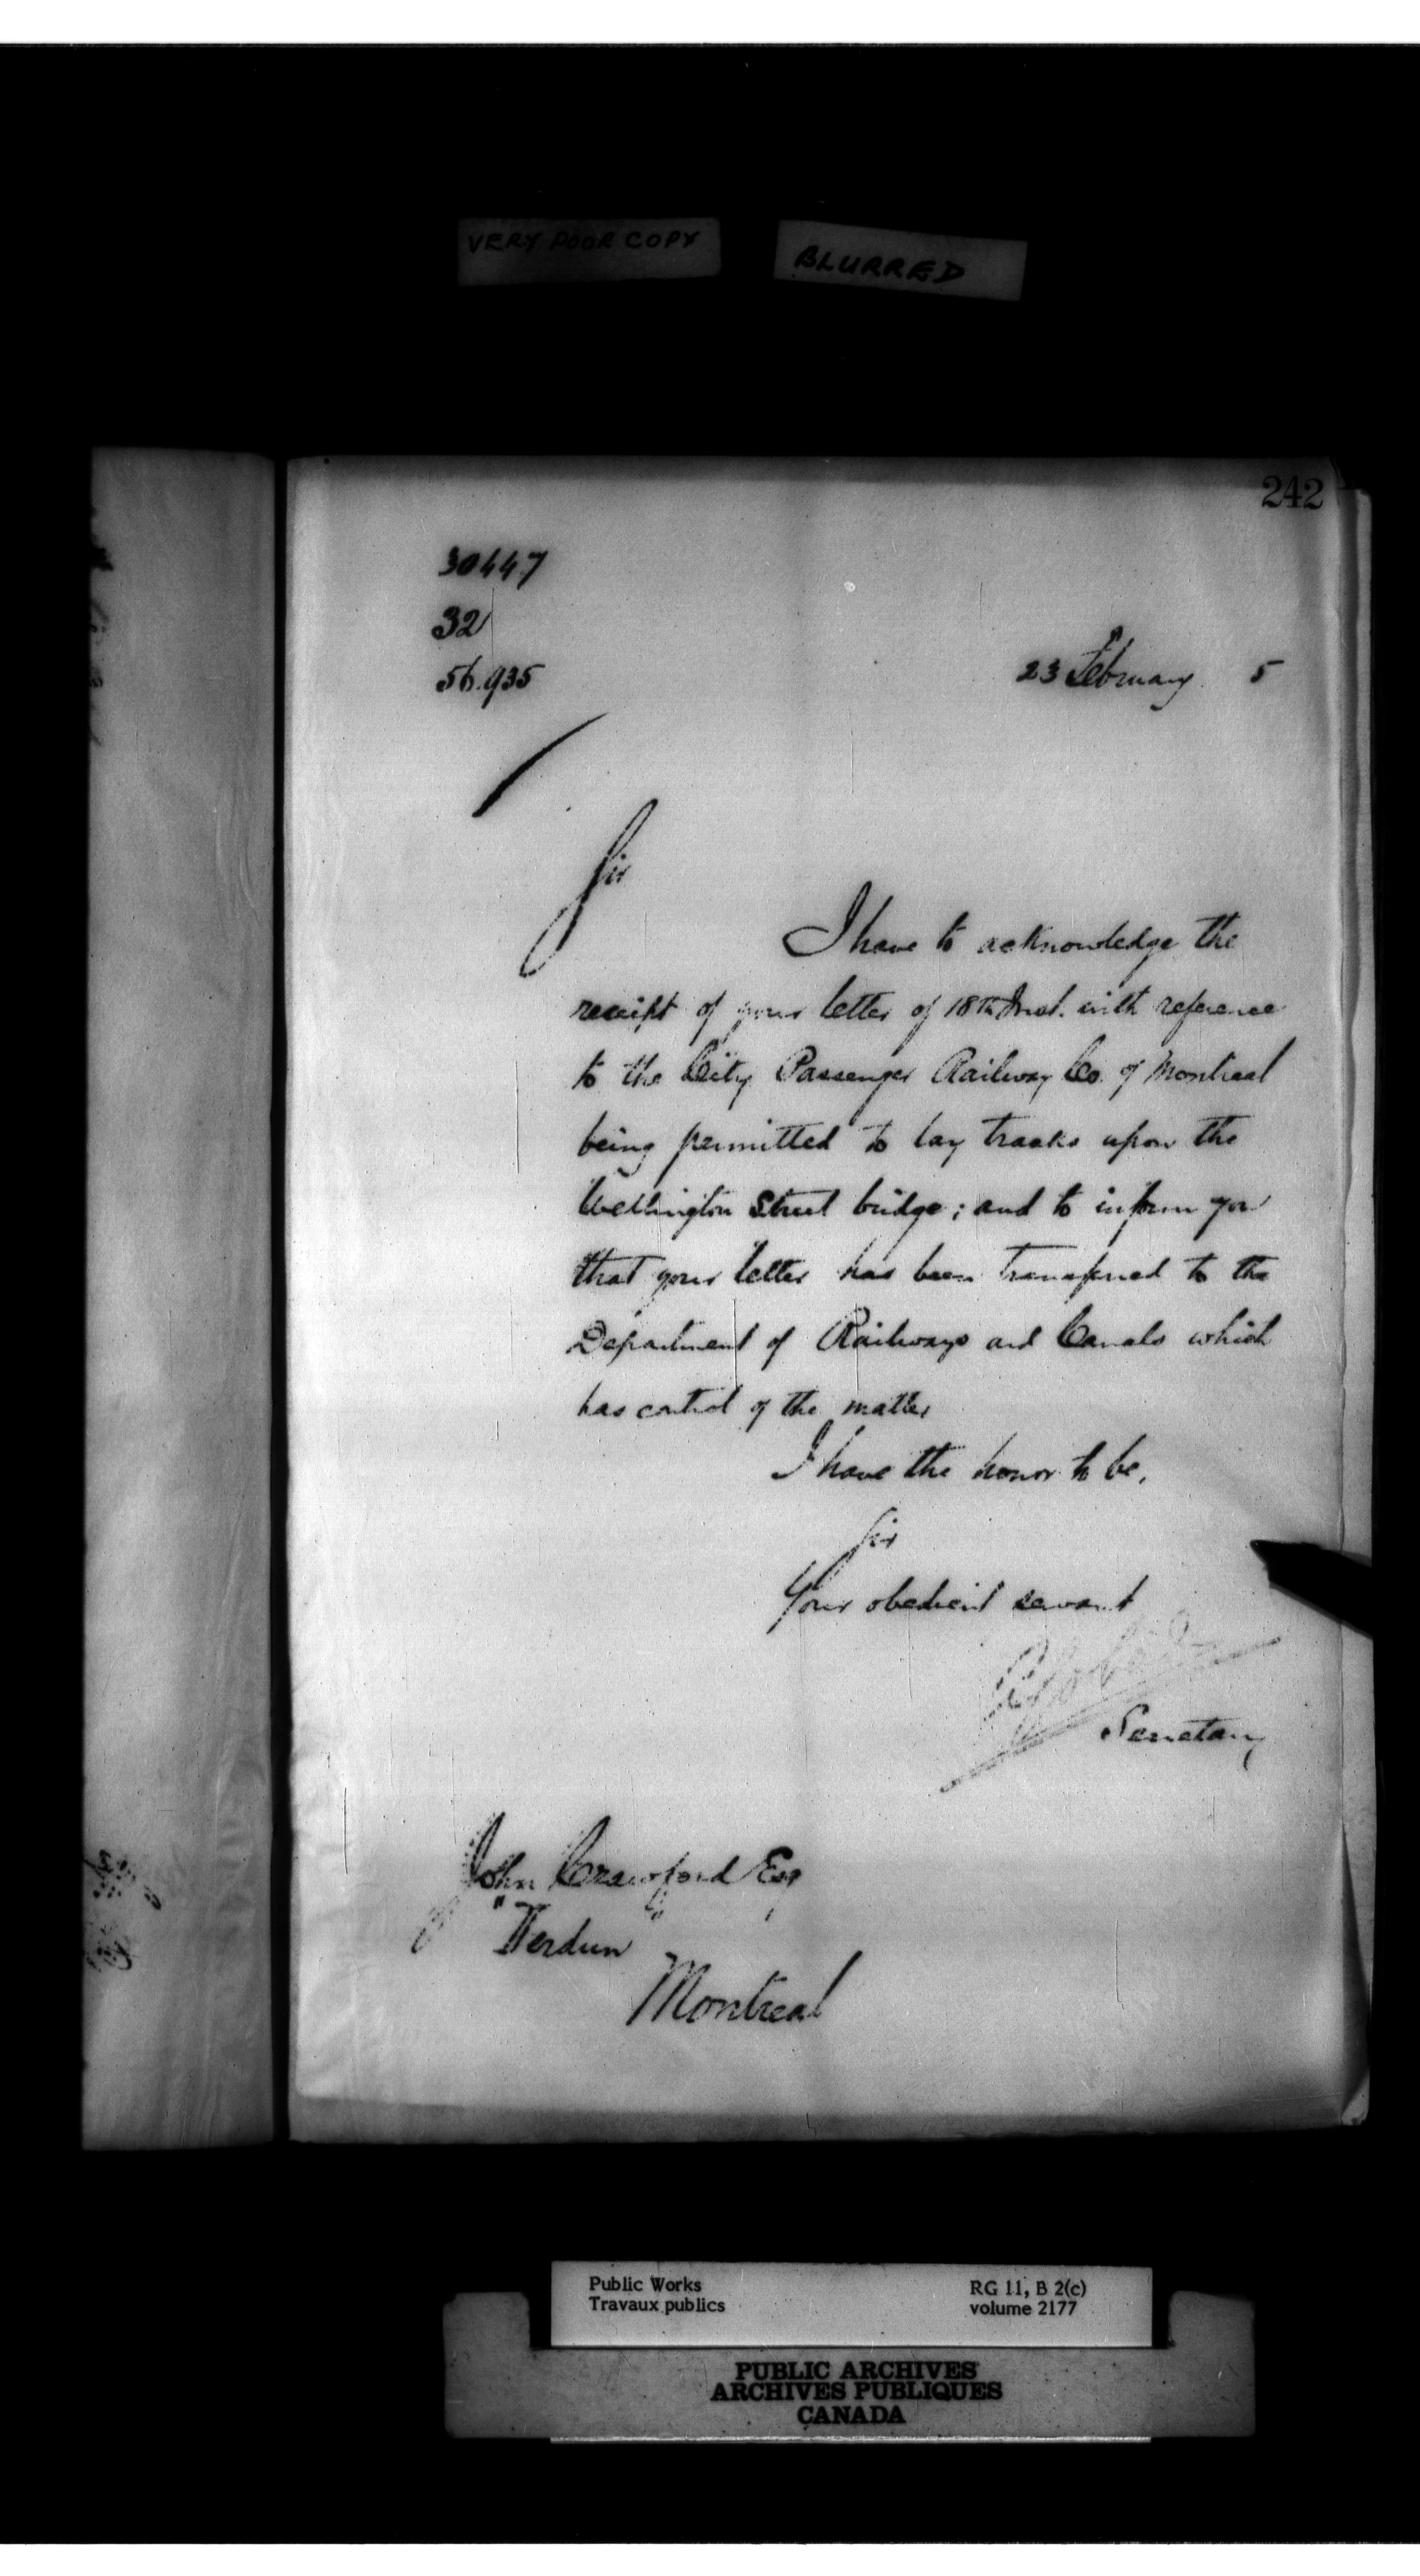 VERY POOR COPY
BLURRED
242
30447
32
56.935
23 February 5
Sir
I have to acknowledge the
receipt of your letter of 18th Inst. with reference
to the City Passenger Railway Co. of Montreal
being permitted to lay tracks upon the
Wellington Street bridge; and to inform you
that your letter has been transferred to the
Department of Railways and Canals which
has control of the matter
I have the honor to be,
Sir
Your obedient servant
Secretary
John Crawford Esq
"Verdun"
Montreal
Public Works
Travaux publics
RG 11, B 2(c)
volume 2177
PUBLIC ARCHIVES
ARCHIVES PUBLIQUES
CANADA